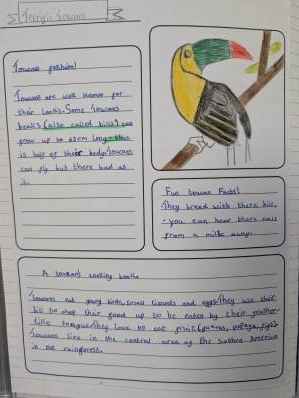 Terrific Toucans
Toucan fashion!
Toucans are well known for
their beaks. Some toucans
beaks (also called bills) can
grow up to 62cm long this
is half of their body. Toucans
can fly but there bad at
it.
Fun toucan Facts!
They bread with there bill.
you can hear there call
from a mile away.
A toucans cooking book.
Toucans eat young birds, small lizards and eggs. They use their
bill to chop their food up to be eaten by their feather
like tongue. They love to eat fruit (guavas, papaya, figs).
Toucans live in the central area of the
in the rainforest.